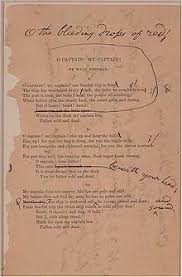 O the bleeding drops of red!
O CAPTAIN! MY CAPTAIN!
BY WALT WHITMAN.
O CAPTAIN! my captain! our fearful trip is done,
The ship has weathered every
The port is near, the bells I hear, the people all exulting,
While follow eyes the steady keel, the vessel grim and daring.
But O heart! heart! heart!
Where on the deck my captain lies,
Fallen cold and dead.
O captain! my captain! rise up and hear the bells;
Rise up! for you the flag is flung, for you the bugle trills:
For you bouquets and ribboned wreaths, for you the shores a-crowding:
For you they call, the swaying mass, their eager faces turning.
O captain! dear father!
This arm
beneath your head;
It is some dream that on the deck
You've fallen cold and dead.
My captain does not answer, his lips are pale and still:
My father does not feel my arm, he has no pulse nor will.
and
sound
From fearful trip the victor ship comes in with object won!
Exult, O shores! and ring, O bells!
Fallen cold and dead.